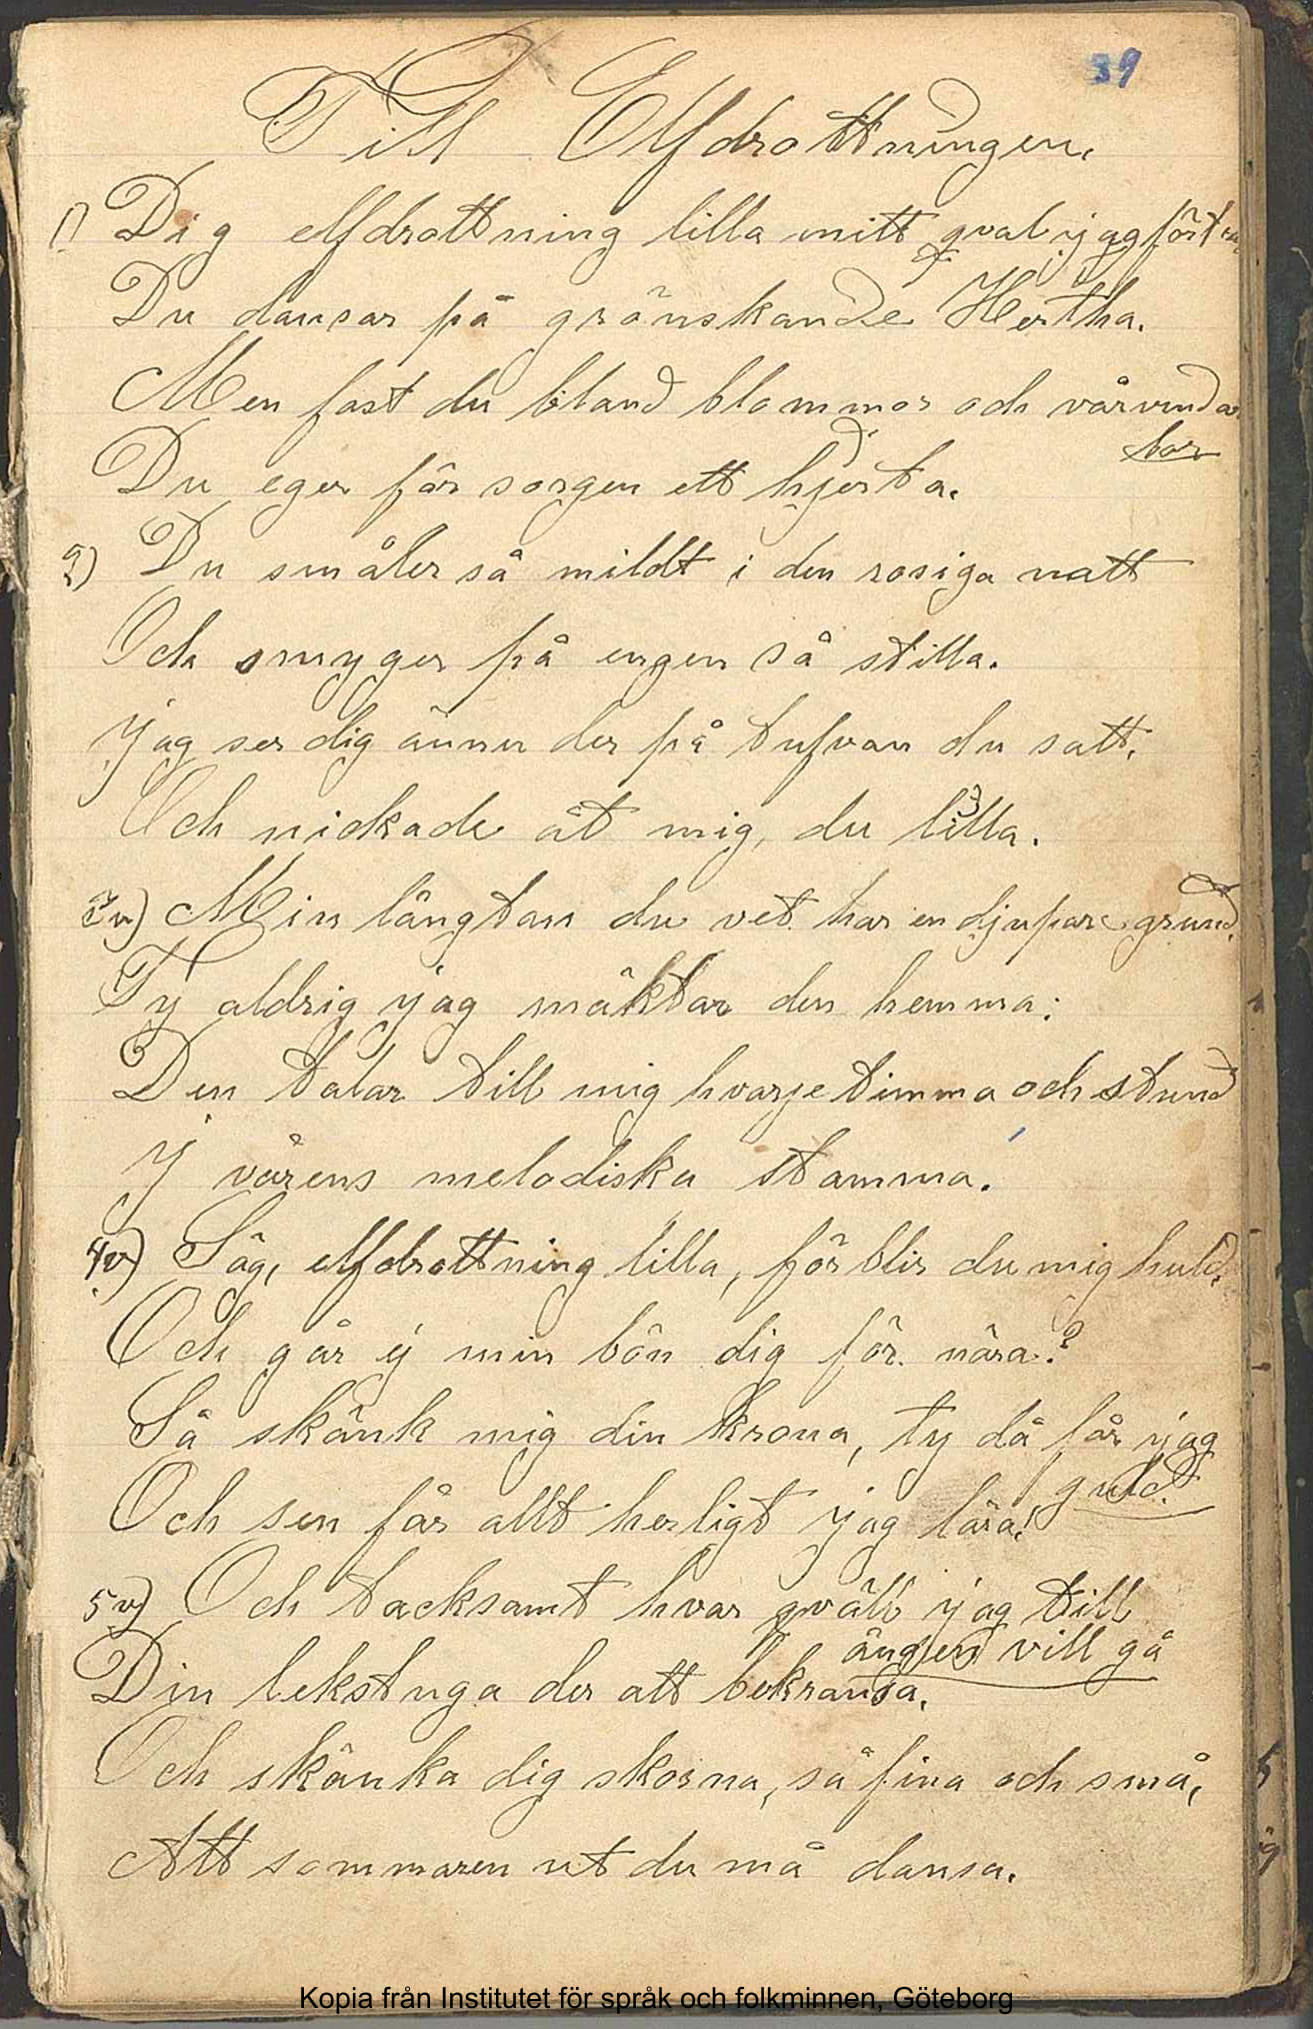 39
Till Elfdrottningen.
1) Dig elfdrottning lilla mitt qval jag
Du dansar på grönskande Hertha.
Men fast du bland blommor och vårvindar
bor
Du eger för sorgen ett hjerta.
2) Du småler så mildt i den rosiga natt
Och smyger på engen så stilla.
Jag ser dig ännu der på tufvan du satt,
Och nickade åt mig, du lilla.
3v) Min längtan du vet har en djupare grund,
Ty aldrig jag mäktar den hemma:
Den talar till mig hvarje timma och stund
I vårens melodiska stämma.
4v) Säg, elfdrottning lilla, förblir du mig huld,
Och går ej min bön dig för nära?
Så skänk mig din krona, ty då får jag
guld.
Och sen får allt herligt jag lära!
5v) Och tacksamt hvar qväll jag till
ängen vill gå
Din lekstuga der att bekransa,
Och skänka dig skorna, så fina och små,
Att sommaren ut du må dansa.
Kopia från Institutet för språk och folkminnen, Göteborg